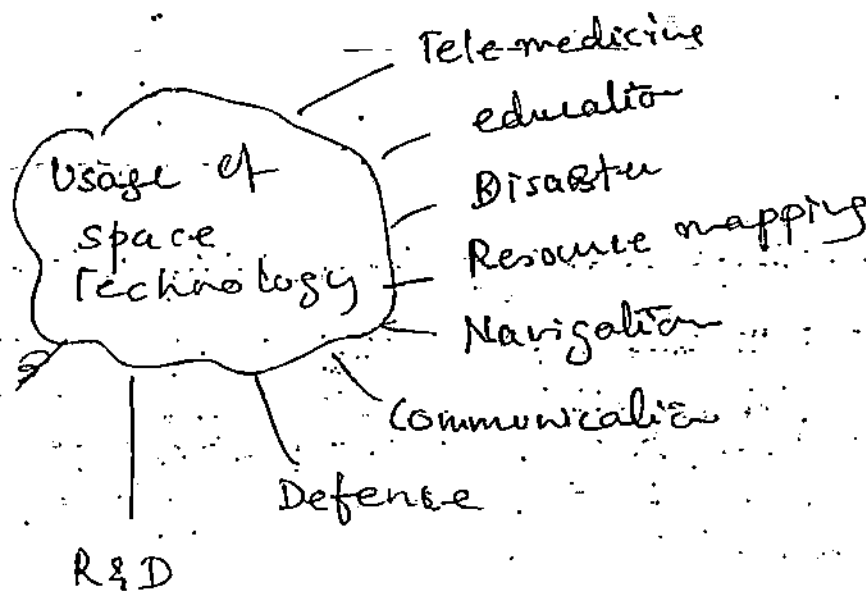 Usage of
space
Technology
Tele-medicine
education
Disaster
Resource mapping
Navigation
Communication
Defense
R & D